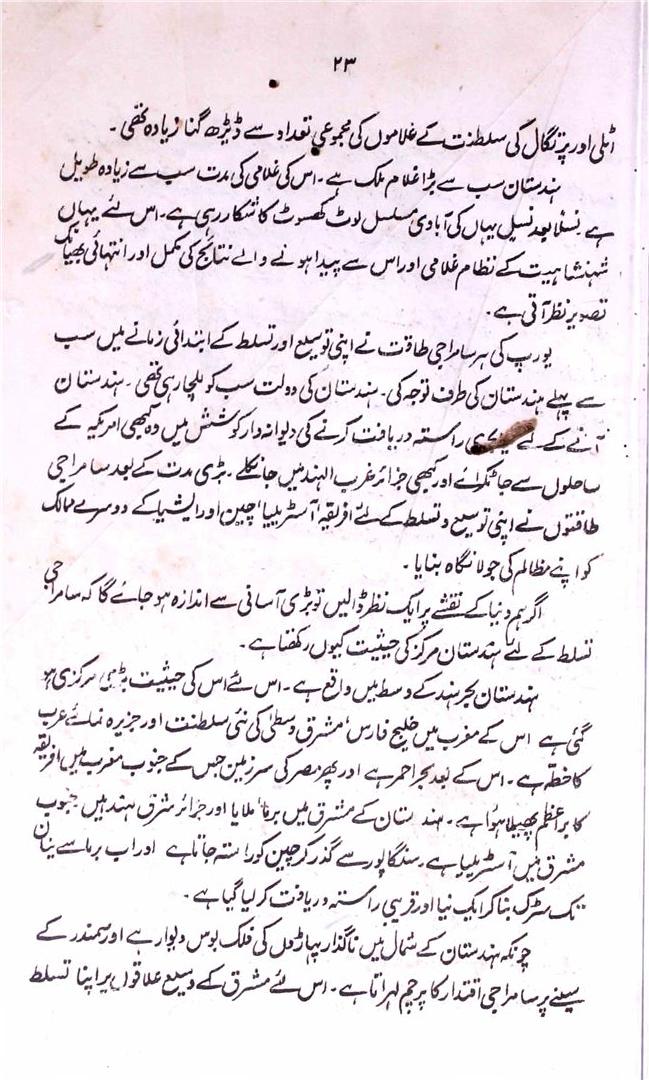 ۲۳
اٹلی اور پرتگال کی سلطنت کے غلاموں کی مجموعی تعداد سے ڈیڑھ گنا زیادہ تھی۔
ہندستان سب سے بڑا غلام ملک ہے۔ اس کی غلامی کی مدت سب سے زیادہ طویل
ہے نسلاً بعد نسلٍ یہاں کی آبادی مسلسل لوٹ کھسوٹ کا شکار رہی ہے۔ اس لئے یہاں
شہنشاہیت کے نظام غلامی اور اس سے پیدا ہونے والے نتائج کی مکمل اور انتہائی بھیانک
تصویر نظر آتی ہے۔
یورپ کی ہر سامراجی طاقت نے اپنی توسیع اور تسلط کے ابتدائی زمانے میں سب
سے پہلے ہندستان کی طرف توجہ کی۔ ہندستان کی دولت سب کو للچا رہی تھی۔ ہندستان
آنے کے لئے راستہ دریافت کرنے کی دیوانہ وار کوشش میں وہ کبھی امریکہ کے
ساحلوں سے جا ٹکرائے اور کبھی جزائر غرب الہند میں جا نکلے۔ بڑی مدت کے بعد سامراجی
طاقتوں نے اپنی توسیع و تسلط کے لئے افریقہ، آسٹریلیا، چین اور ایشیا کے دوسرے ممالک
کو اپنے مظالم کی جولانگاہ بنایا۔
اگر ہم دنیا کے نقشے پر ایک نظر ڈالیں تو بڑی آسانی سے اندازہ ہو جائے گا کہ سامراجی
تسلط کے لئے ہندستان مرکز کی حیثیت کیوں رکھتا ہے۔
ہندستان بحر ہند کے وسط میں واقع ہے۔ اس لئے اس کی حیثیت بڑی مرکزی ہو
گئی ہے اس کے مغرب میں خلیج فارس، مشرق وسطیٰ کی نئی سلطنت اور جزیرہ نمائے عرب
کا خطہ ہے۔ اس کے بعد بحر احمر ہے اور پھر مصر کی سرزمین جس کے جنوب مغرب میں افریقہ
کا براعظم پھیلا ہوا ہے۔ ہندستان کے مشرق میں برما، ملایا اور جزائر شرق ہند ہیں جنوب
مشرق میں آسٹریلیا ہے۔ سنگاپور سے گذر کر چین کو راستہ جاتا ہے اور اب برما سے ینان
تک سڑک بنا کر ایک نیا اور قریبی راستہ دریافت کر لیا گیا ہے۔
چونکہ ہندستان کے شمال میں ناگذار پہاڑوں کی فلک بوس دیوار ہے اور سمندر کے
سینے پر سامراجی اقتدار کا پرچم لہراتا ہے۔ اس لئے مشرق کے وسیع علاقوں پر اپنا تسلط